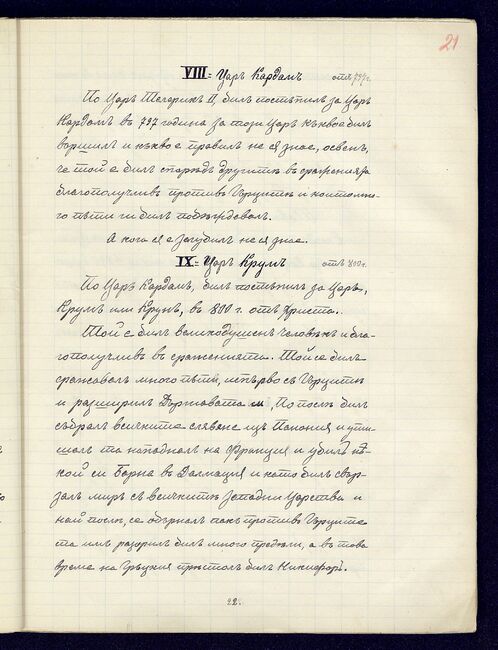 21
VIII = Царь Кардамъ отъ 797г.
По Царь Телерикъ II, билъ постѫпилъ за Царь
Кардамъ въ 797 година за този Царь къкво е билъ
воршилъ и какво е правилъ не ся знае, освенъ,
че той е билъ споредъ другитѣ въ сраженията
благополучивъ противъ Гърцитѣ и
го пѫти ги билъ побѣждовалъ.
А кога ся е загубилъ не ся знае.
IX = Царь Крумъ отъ 800г.
По Царь Кардамъ, билъ постѫпилъ за Царь,
Крумъ или Крунъ, въ 800 г. отъ Христа.
Той е билъ великодушенъ человѣкъ и бла-
гополучивъ въ сраженията. Той се билъ
сражавалъ много пѫти, испърво съ Гърцитѣ
и разширилъ Държавата си, По послѣ билъ
събралъ всичките славяне изъ Панония и
шолъ та нападналъ на Франция и убилъ нѣ-
кой си Борна въ Далмация и като билъ свър-
залъ миръ съ всичкитѣ Западни Царства и
най послѣ, се обърналъ пакъ противъ Гърците
та имъ разорилъ билъ много предѣли, а въ това
време на Гръцкия прѣстолъ билъ Никифоръ.
22.